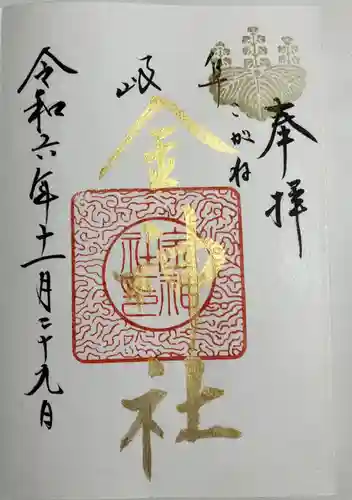 奉拝
岐阜
こがね
金神社
金神社印
令和六年十一月二十九日